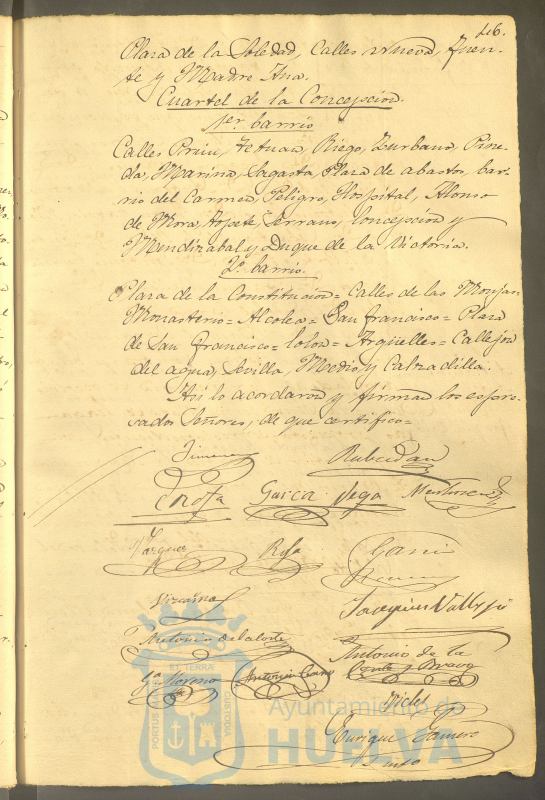 46.
Plaza de la Soledad, Calles Nueva, Fuen-
te y Madre Ana.
Cuartel de la Concepcion.
1er. barrio
Calles Prim, Tetuan, Riego, Zurbano, Pine-
da, Marina, Sagasta, Plaza de abastos, bar-
rio del Carmen, Peligro, Hospital, Alonso
de Mora, Topete, Serrano, Concepcion y
Mendizabal y Duque de la Victoria.
2º barrio.
Plaza de la Constitucion = Calles de las Monjas
Monasterio = Alcolea = San Francisco = Plaza
de San Francisco = Colon = Argüelles = Callejon
del agua, Sevilla, Medio y Calzadilla.
Asi lo acordaron y firman los espre-
sados Señores, de que certifico =
Jimenez
Garcia Vega
Vazquez Rosa
Vizcaino Joaquin Vallejo
Antonio de la Corte Antonio de la
Corte y Bravo
Moreno Antonio
Enrique
PORTUS EL TERRA CUSTODIA
Ayuntamiento de
HUELVA